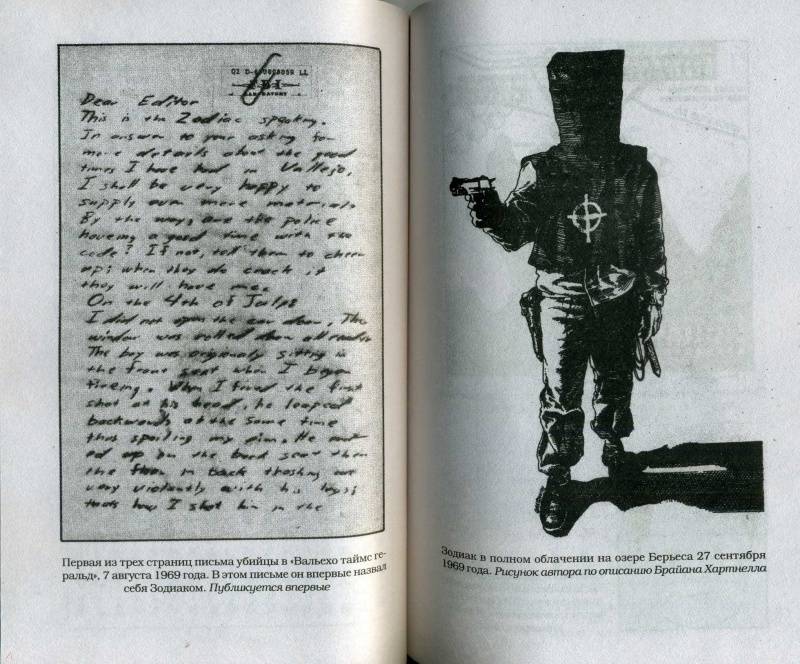 02 D-690808059 LL
FBI
LABORATORY
Dear Editor
This is the Zodiac speaking.
In answer to your asking for
more details about the good
times I have had in Vallejo,
I shall be very happy to
supply even more material.
By the way, are the police
haveing a good time with the
code? If not, tell them to cheer
up; when they do crack it
they will have me.
On the 4th of July:
I did not open the car door, The
window was rolled down all ready.
The boy was origionaly sitting in
the front seat when I began
fireing. When I fired the first
shot at his head, he leaped
backwards at the same time
thus spoiling my aim. He end
ed up on the back seat then
the floor in back thashing out
very violently with his legs;
thats how I shot him in the
Первая из трех страниц письма убийцы в «Вальехо таймс ге-
ральд», 7 августа 1969 года. В этом письме он впервые назвал
себя Зодиаком. Публикуется впервые
Зодиак в полном облачении на озере Берьеса 27 сентября
1969 года. Рисунок автора по описанию Брайана Хартнелла